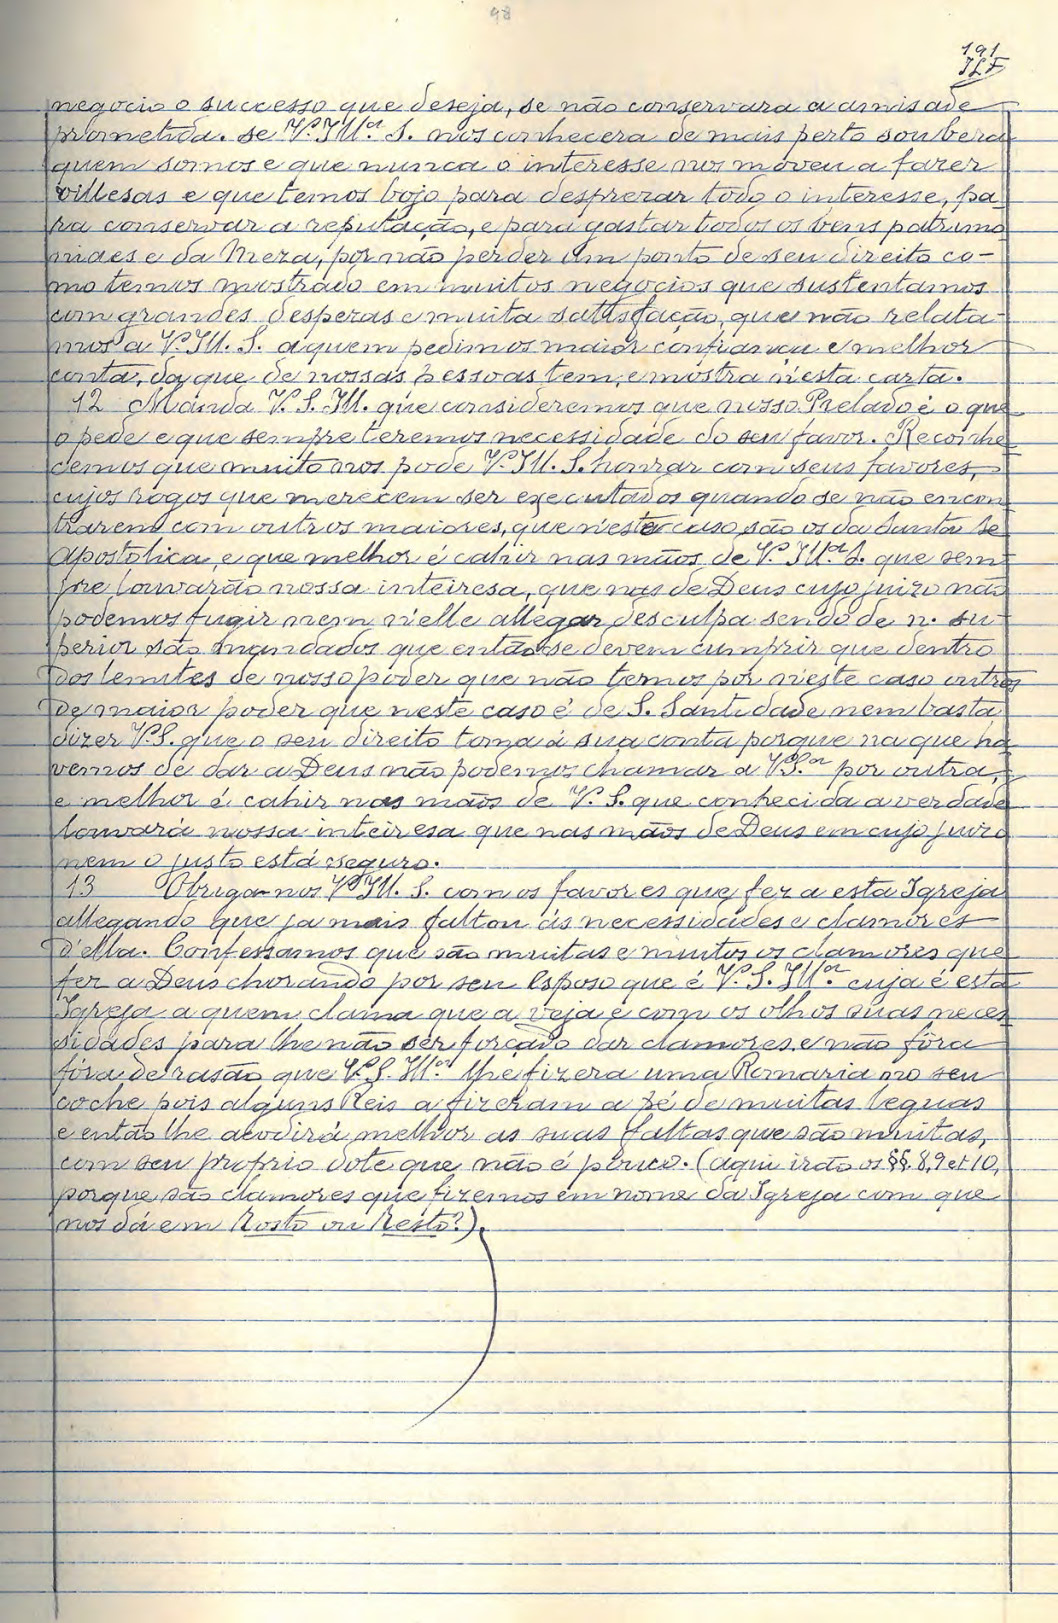 98
191
JLF
negocio o successo que deseja, se não conservara a amisade
prometida. Se V. Ill.ª S. nos conhecera de mais perto soubera
quem somos e que nunca o interesse nos moveu a fazer
villesas e que temos bojo para desprezar todo o interesse, pa
ra conservar a reputação, e para gastar todos os bens patrimo
niaes e da Meza, por não perder um ponto de seu direito co-
mo temos mostrado em muitos negocios que sustentamos
com grandes despezas e muita satisfação, que não relata-
mos a V. Ill. S. a quem pedimos maior confiança e melhor
conta, da que de nossas pessoas tem, e mostra n'esta carta.
12 Manda V. S. Ill. que consideremos que nosso Prelado é o que
o pede e que sempre teremos necessidade do seu favor. Reconhe
cemos que muito nos pode V. Ill. S. honrar com seus favores,
cujos rogos que merecem ser executados quando se não encon
trarem com outros maiores, que n'este caso são os da Santa Sé
Apostolica, e que melhor é cahir nas mãos de V. Ill.ª S. que sem
pre louvarão nossa inteiresa, que nas de Deus cujo juizo não
podemos fugir nem n'elle allegar desculpa sendo de n. su-
perior são mandados que então se devem cumprir que dentro
dos lemites de nosso poder que não temos por n'este caso outros
de maior poder que neste caso é de S. Santidade nem basta
dizer V. S. que o seu direito toma á sua conta porque na que ha
vemos de dar a Deus não podemos chamar a V. S.ª por outra,
e melhor é cahir nas mãos de V. S. que conhecida a verdade
louvará nossa inteiresa que nas mãos de Deus em cujo juizo
nem o justo está seguro.
13 Obriga-nos V. Ill. S. com os favores que fez a esta Igreja
allegando que jamais faltou ás necessidades e clamores
d'ella. Confessamos que são muitas e muitos os clamores que
fez a Deus chorando por seu Esposo que é V. S. Ill.ª cuja é esta
Igreja a quem clama que a veja e com os olhos suas neces
sidades para lhe não ser forçado dar clamores e não fôra
fóra de rasão que V. S. Ill.ª lhe fizera uma Romaria no seu
coche pois alguns Reis a fizeram a pé de muitas leguas
e então lhe acodirá melhor as suas faltas que são muitas,
com seu proprio dote que não é pouco. (aqui irão os §§. 8, 9 et 10,
porque são clamores que fizemos em nome da Igreja com que
nos dá em Rosto ou Resto?).